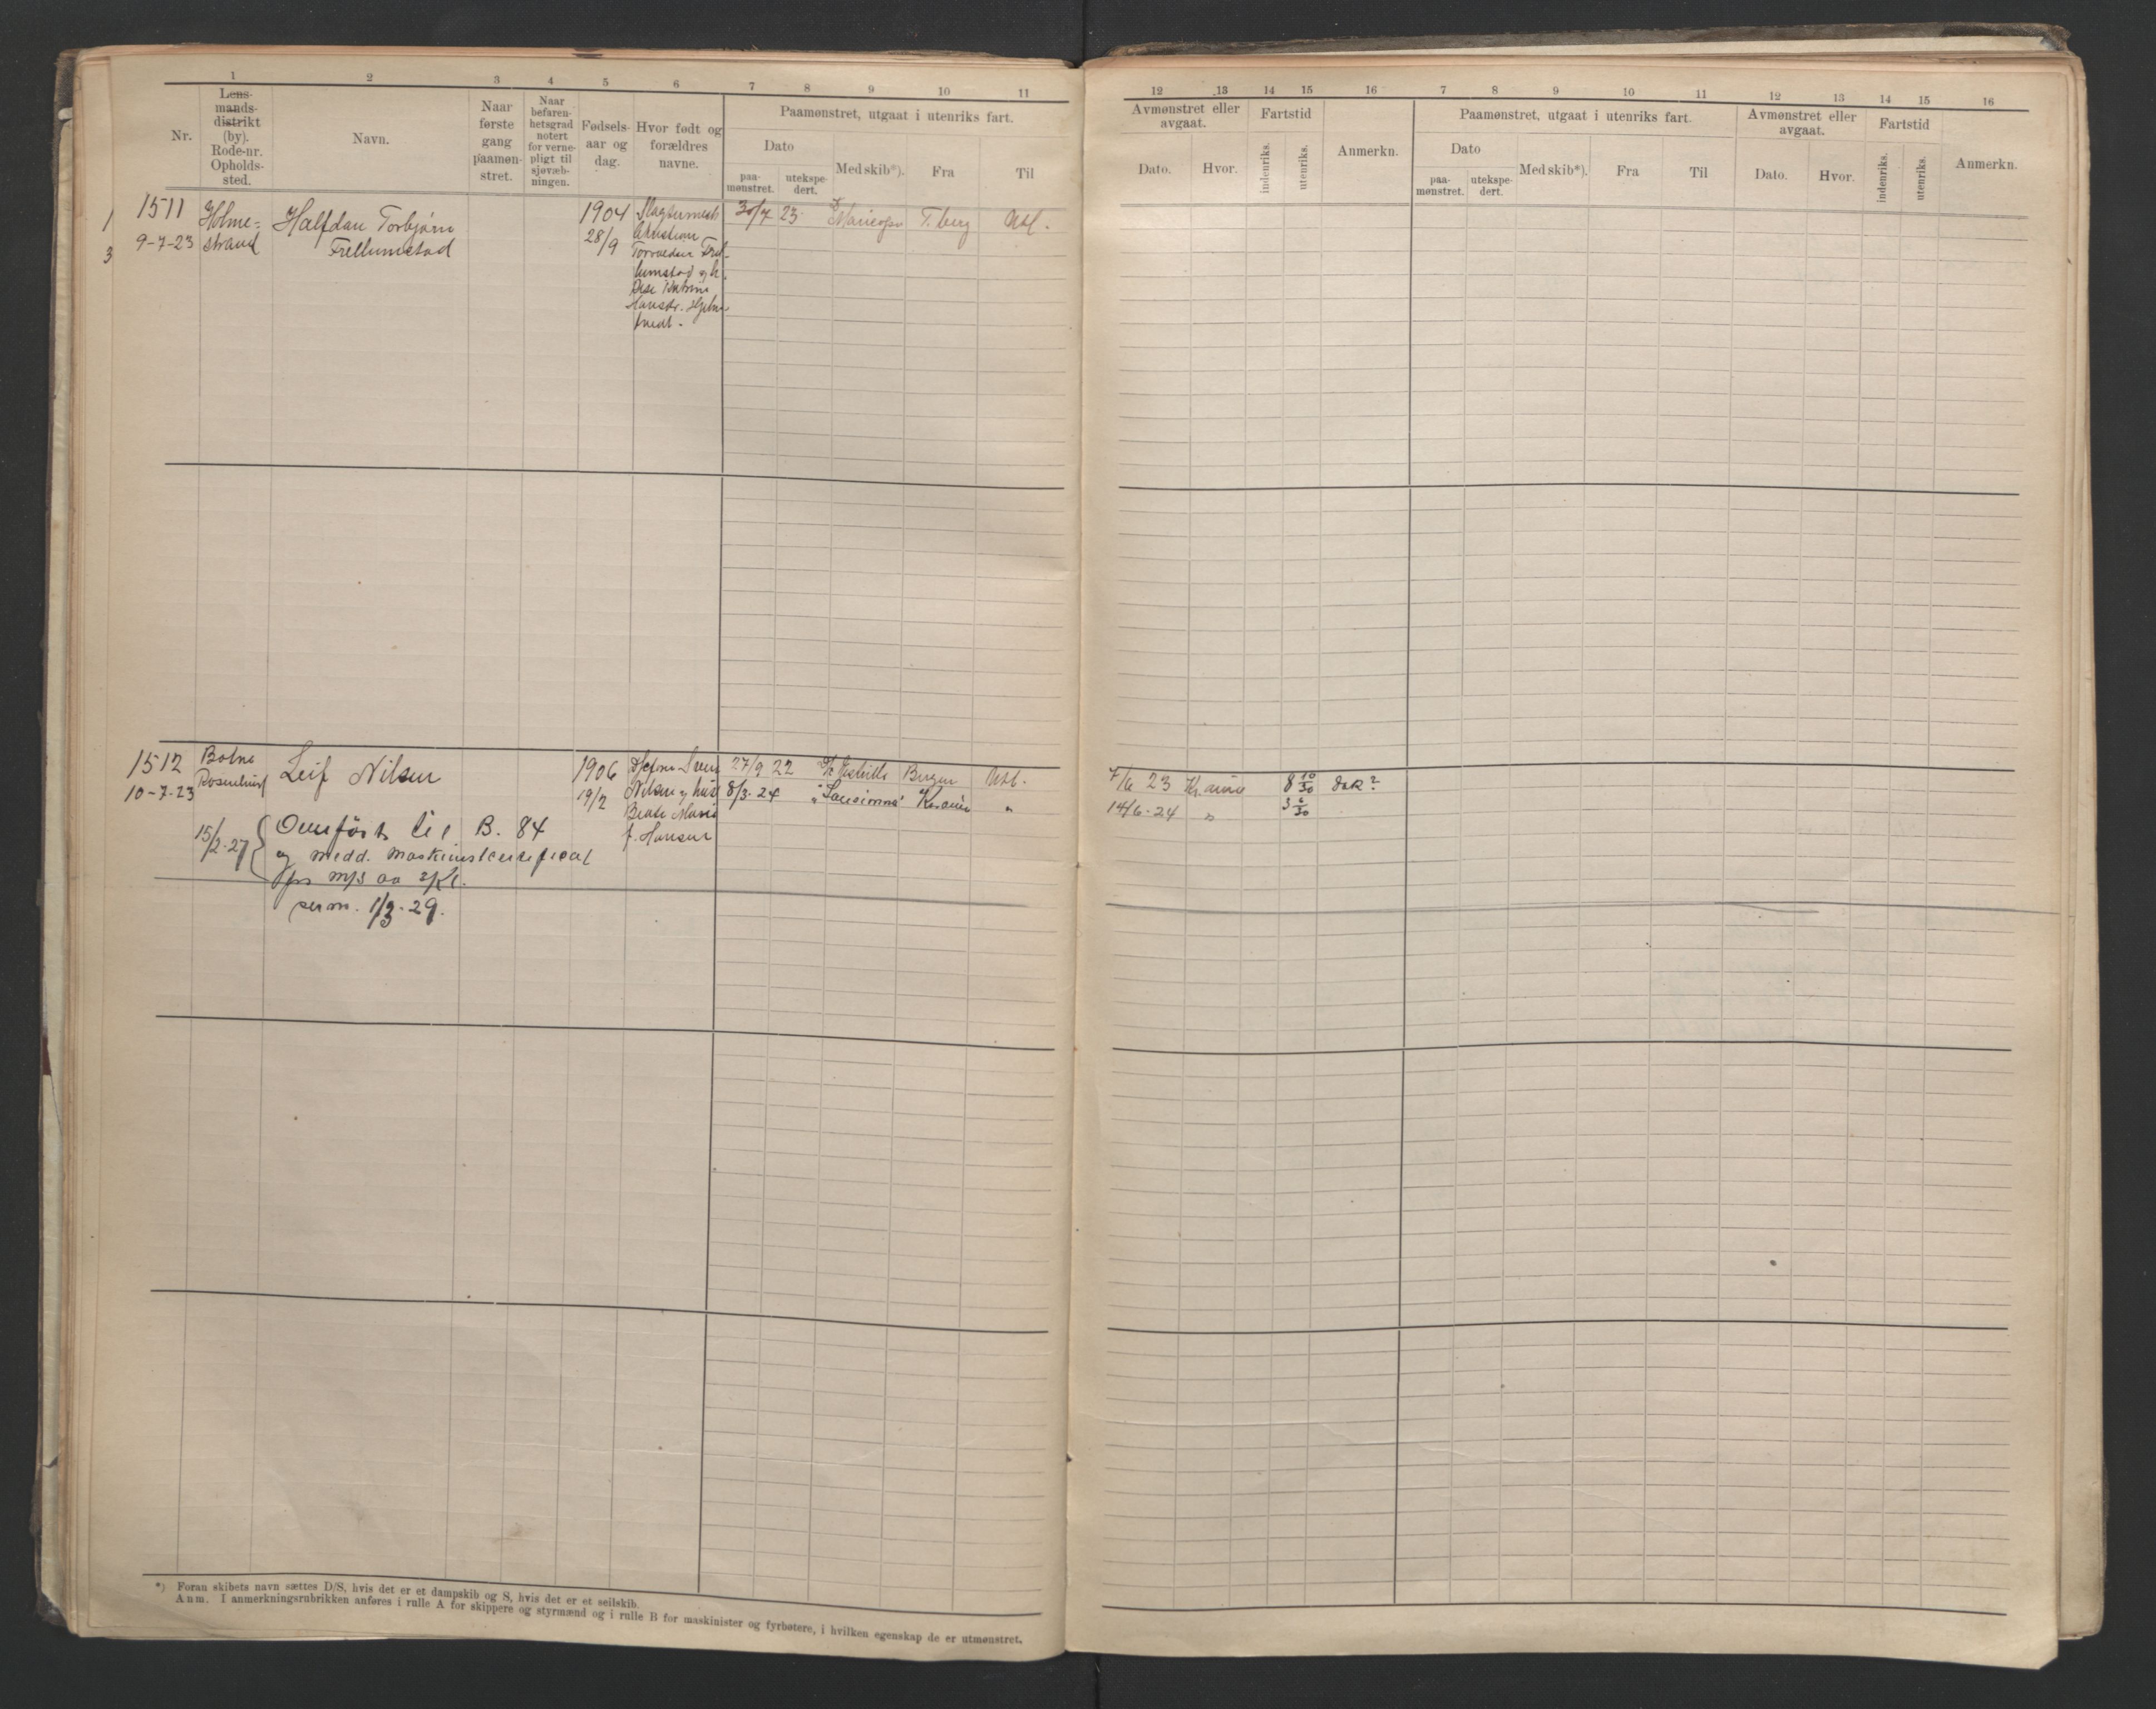 1 2 3 4 5 6 7 8 9 10 11
Nr.
Lens-
mands-
distrikt
(by).
Rode-nr.
Opholds-
sted.
Navn.
Naar
første
gang
paamøn-
stret.
Naar
befaren-
hetsgrad
notert
for verne-
pligt til
sjøvæb-
ningen.
Fødsels-
aar og
dag.
Hvor født og
forældres
navne.
Paamønstret, utgaat i utenriks fart.
Dato
paa-
mønstret.
utekspe-
dert.
Med skib*).
Fra
Til
1
3
1511
9-7-23
Holme=
strand
Halfdan Torbjørn
Frellumstad
1904
28/9
30/7 23
T.berg
Utl.
1512
10-7-23
Botne
Leif Nilsen
1906
19/2
Nilsen
Marie
f. Hansen
27/9 22
Bergen
Utl.
8/3-24
Kr.ania
"
15/2-27
Overført til B. 84
og medd. maskinistcertificat
2/Kl.
perm. 1/3-29.
*) Foran skibets navn sættes D/S, hvis det er et dampskib og S, hvis det er et seilskib.
Anm. I anmerkningsrubrikken anføres i rulle A for skippere og styrmænd og i rulle B for maskinister og fyrbøtere, i hvilken egenskap de er utmønstret.
12 13 14 15 16 7 8 9 10 11 12 13 14 15 16
Avmønstret eller
avgaat.
Dato.
Hvor.
Fartstid
indenriks.
utenriks.
Anmerkn.
Paamønstret, utgaat i utenriks fart.
Dato
paa-
mønstret.
utekspe-
dert.
Med skib*).
Fra
Til
Avmønstret eller
avgaat.
Dato.
Hvor.
Fartstid
indenriks.
utenriks.
Anmerkn.
7/6 23 Kr.ania 8 10/30
14/6-24 " 3 6/30